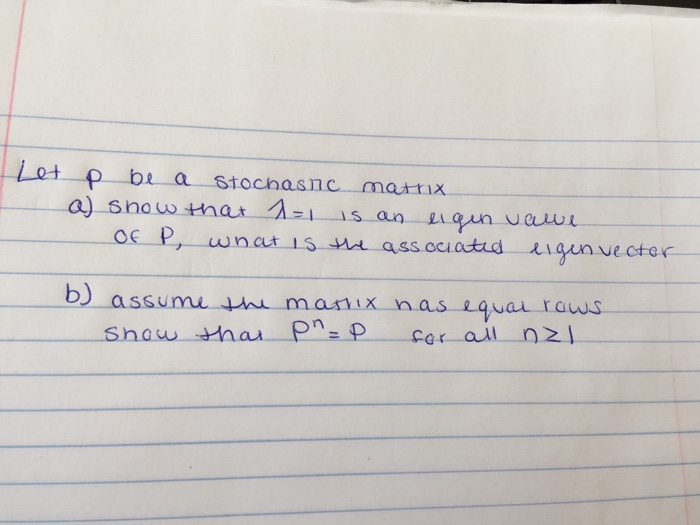 Let p be a stochastic matrix
a) show that λ=1 is an eigen value
of P, what is the associated eigenvector
b) assume the matrix has equal rows
show that pⁿ = p for all n≥1